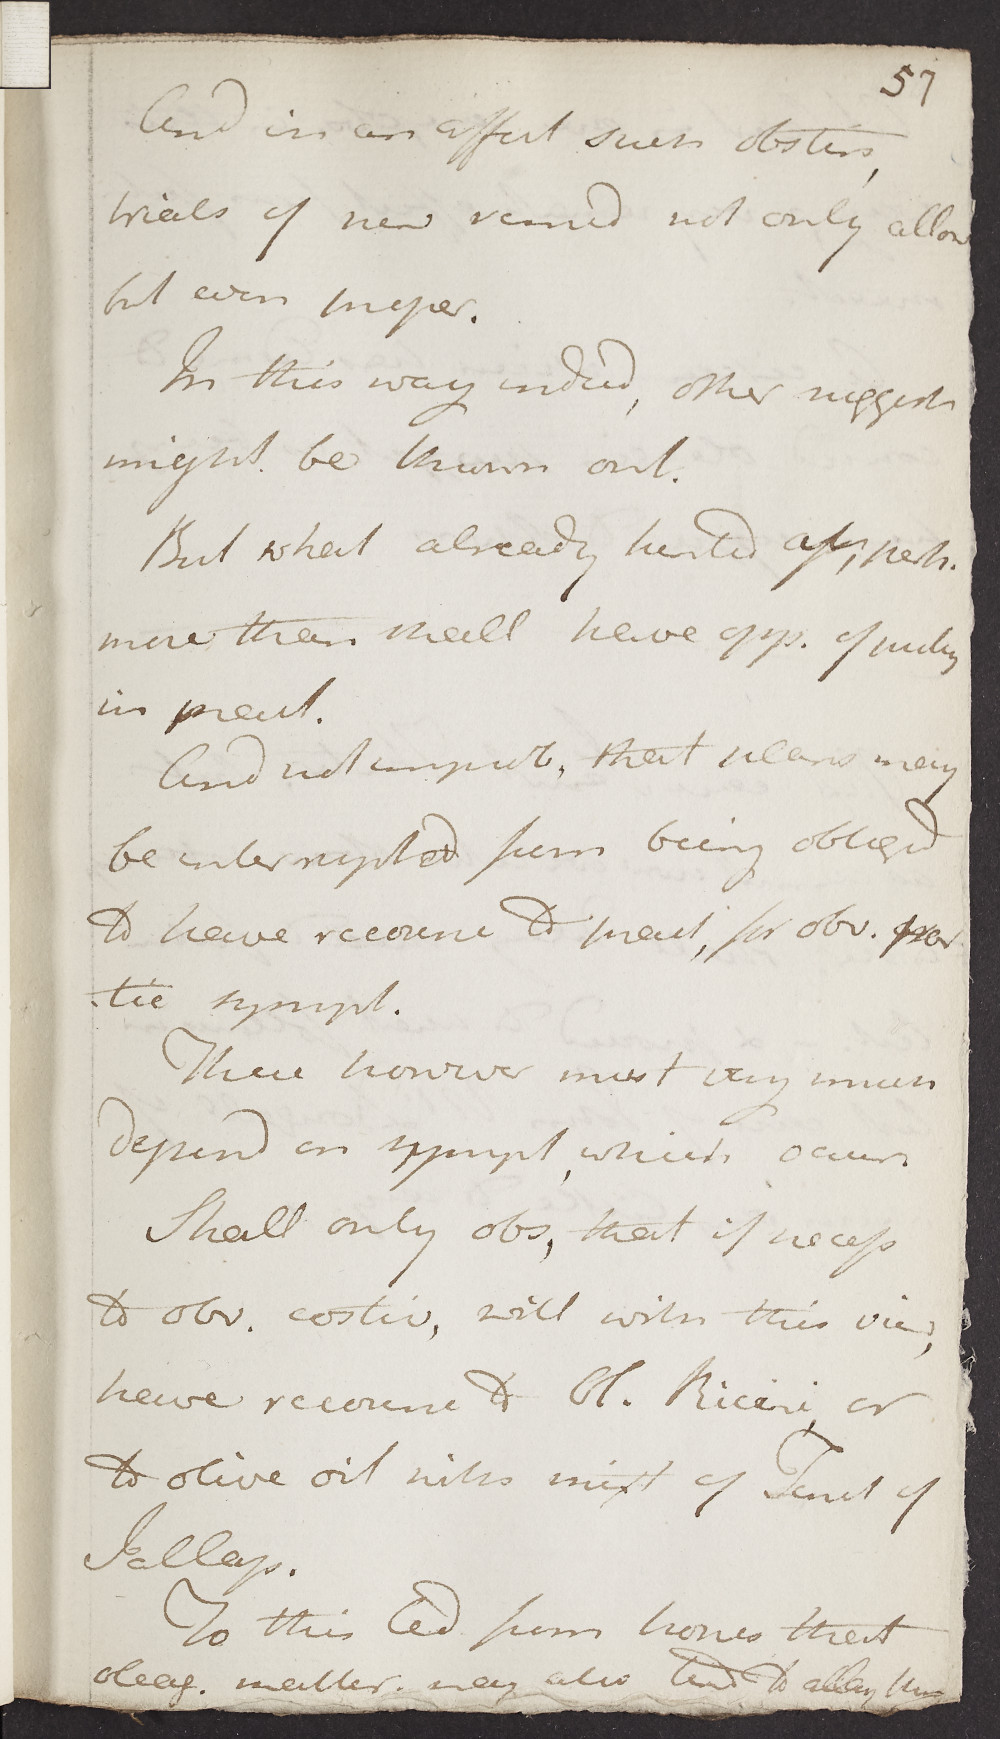 57
And in an affect such obstin,
trials of new remed not only allow
but even proper.
In this way indeed, other suggest
might be thrown out.
But what already hinted aft, perh.
more than shall have opp. of putting
in pract.
And not improb, that plans may
be interrupted from being obliged
to have recourse to pract, for obv. par
tic sympt.
These however must very much
depend on sympt, which occur
Shall only obs, that if necess
to obv. costiv, will with this view,
have recourse to Ol. Ricini, or
to olive oil with mixt of Tinct of
Jallap.
To this led from hopes that
oleag. matter. may also tend to allay